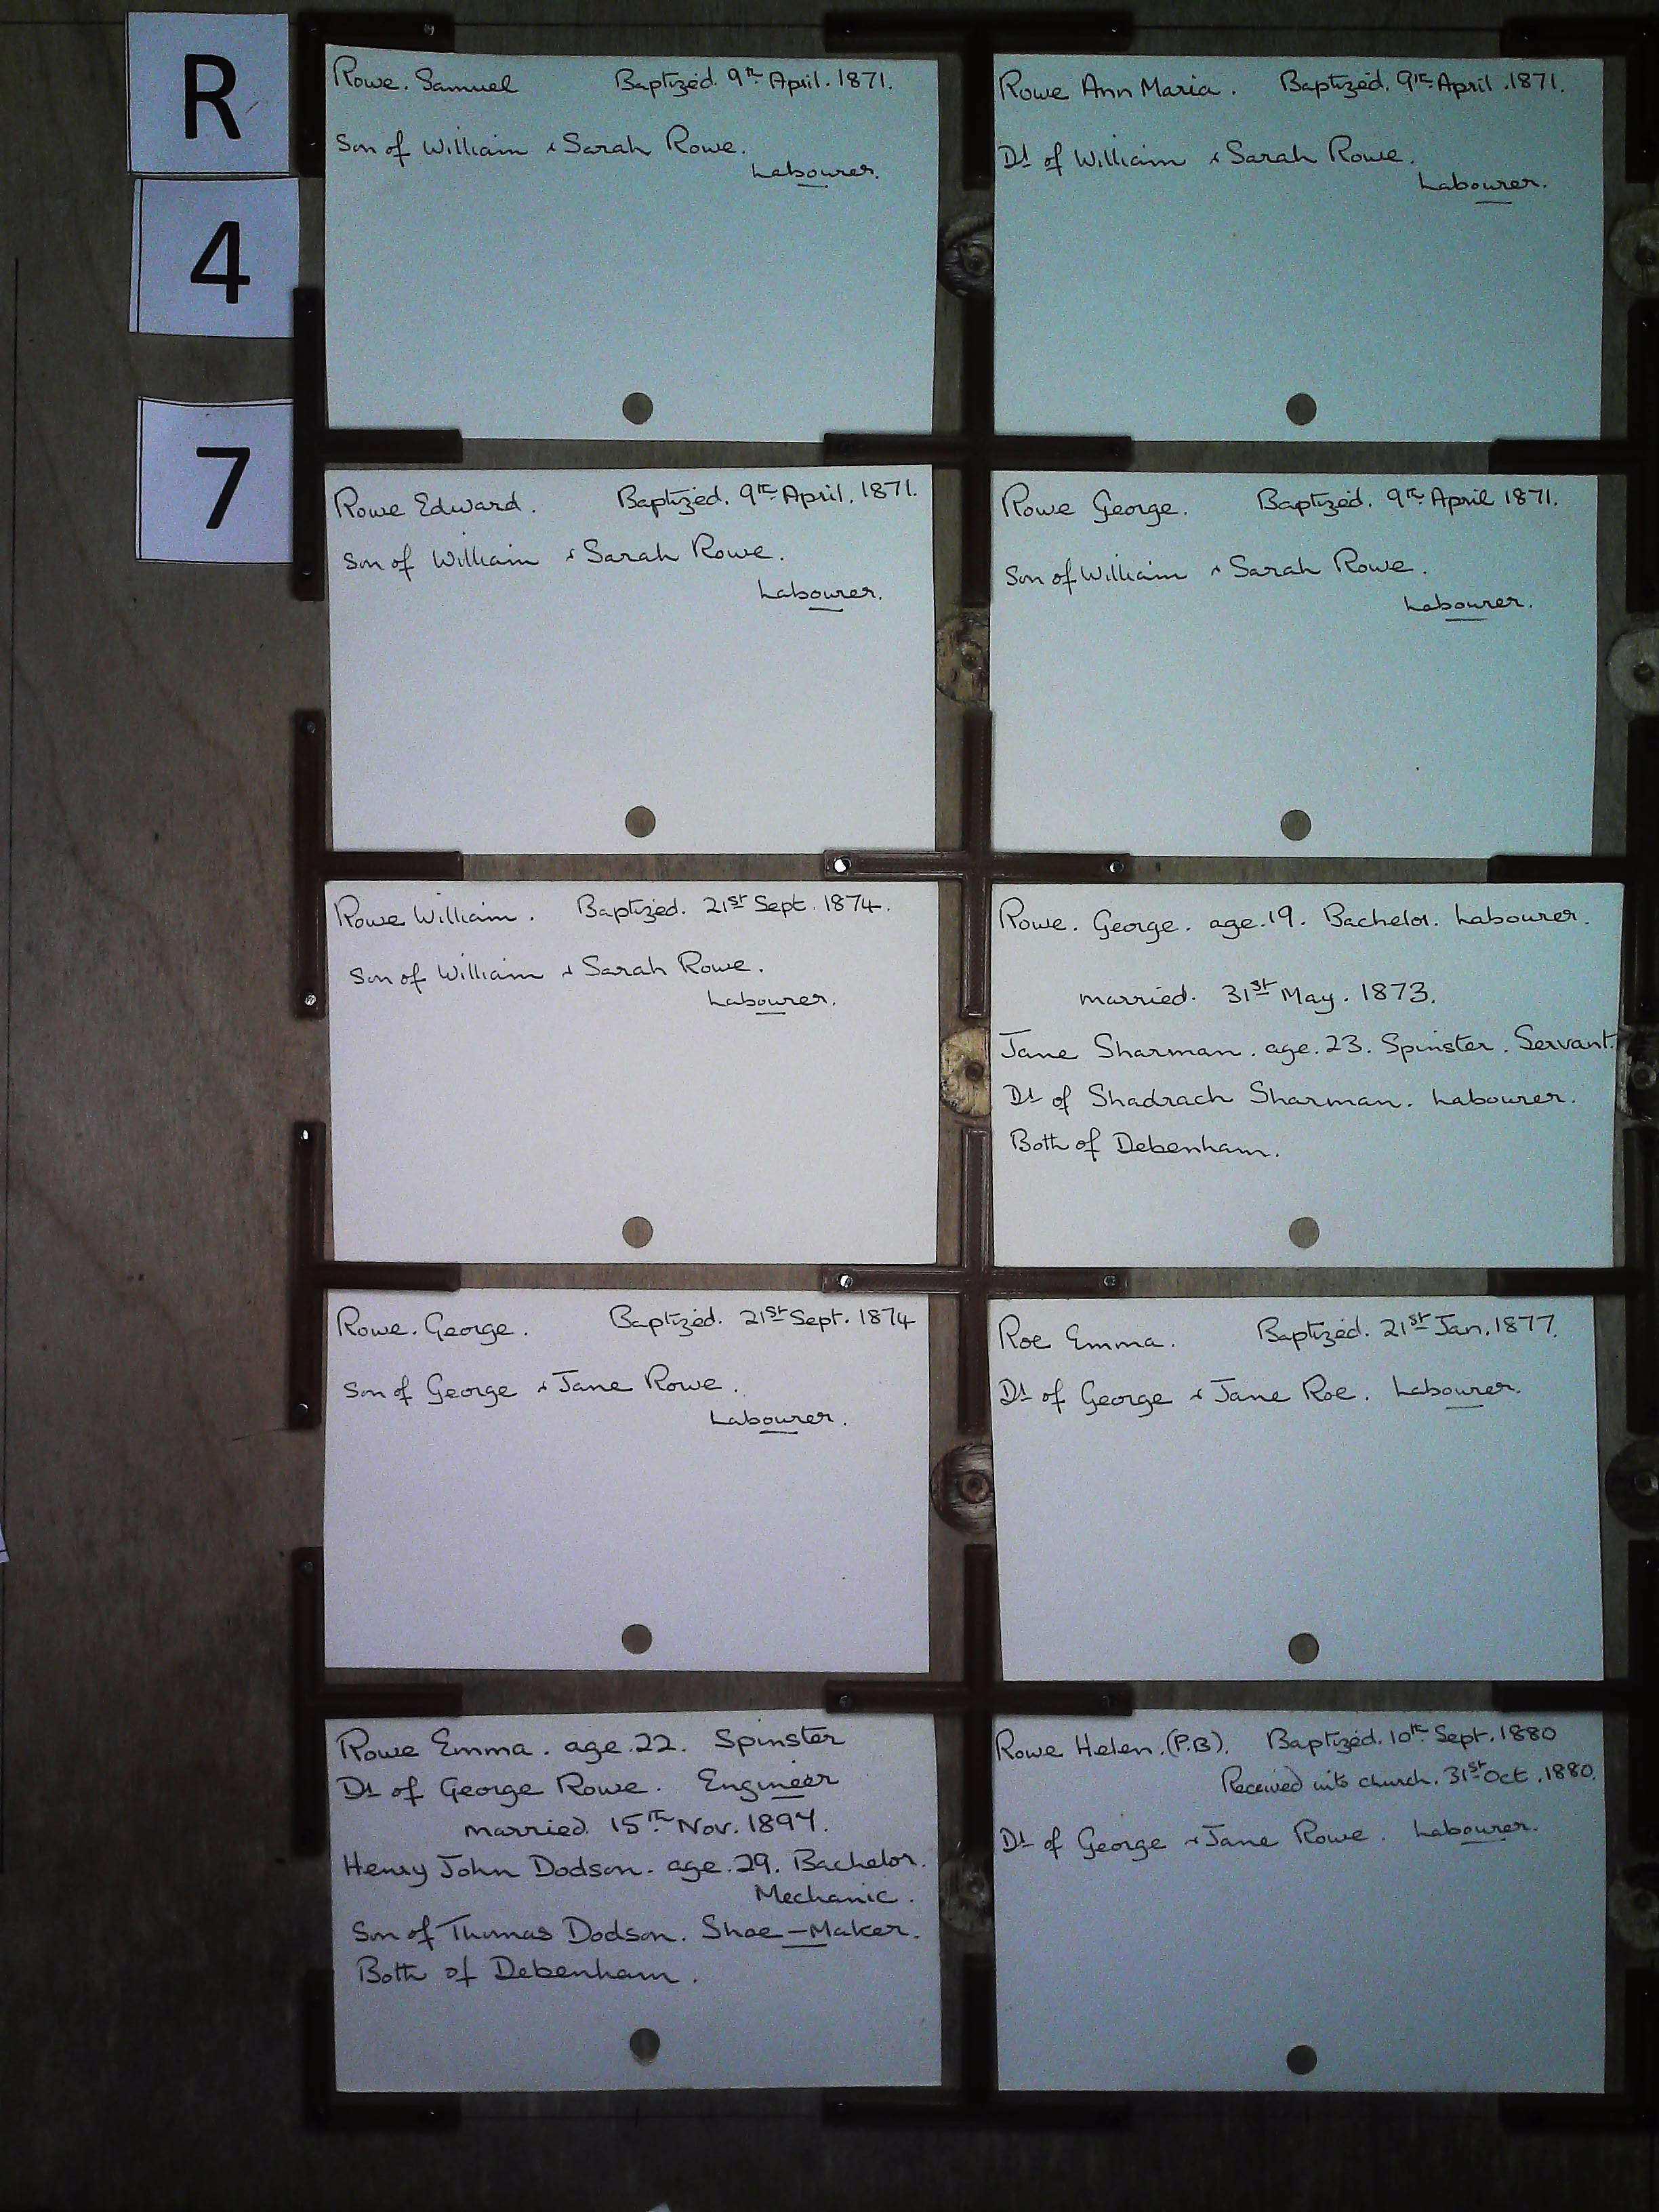 R
4
7
Rowe. Samuel Baptized. 9th April. 1871.
Son of William & Sarah Rowe.
Labourer.
Rowe Ann Maria. Baptized. 9th April. 1871.
Dt of William & Sarah Rowe.
Labourer.
Rowe Edward. Baptized. 9th April. 1871.
Son of William & Sarah Rowe.
Labourer.
Rowe George. Baptized. 9th April 1871.
Son of William & Sarah Rowe.
Labourer.
Rowe William. Baptized. 21st Sept. 1874.
Son of William & Sarah Rowe.
Labourer.
Rowe. George. age. 19. Bachelor. Labourer.
married. 31st May. 1873.
Jane Sharman. age. 23. Spinster. Servant.
Dt of Shadrach Sharman. Labourer.
Both of Debenham.
Rowe. George. Baptized. 21st Sept. 1874
Son of George & Jane Rowe.
Labourer.
Roe Emma. Baptized. 21st Jan. 1877.
Dt of George & Jane Roe. Labourer.
Rowe Emma. age. 22. Spinster
Dt of George Rowe. Engineer
married. 15th Nov. 1897.
Henry John Dodson. age. 29. Bachelor.
Mechanic.
Son of Thomas Dodson. Shoe-Maker.
Both of Debenham.
Rowe Helen. (P.B). Baptized. 10th Sept. 1880
Received into church. 31st Oct. 1880.
Dt of George & Jane Rowe. Labourer.